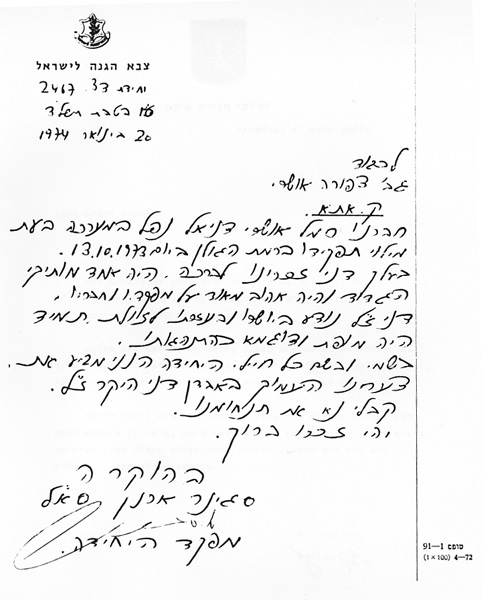 צבא הגנה לישראל
יחידת ד.צ. 2467
בטבת תשל"ד
20 בינואר 1974
לכבוד
גב' צפורה אושרי
ק. אתא.
חברנו סמל אושרי דניאל נפל במערכה בעת
מילוי תפקידו ברמת הגולן ביום 13.10.1973.
דני זכרונו לברכה. היה אחד מותיקי
הגדוד והיה אהוב מאוד על מפקדיו וחבריו.
דני ז"ל נודע ביושרו ובעזרתו לזולת. תמיד
היה מופת ודוגמא בהתנהגותו.
בשמי ובשם כל חייל היחידה הנני מביע את
צערנו העמוק באבדן דני היקר ז"ל.
קבלי נא את תנחומנו.
יהי זכרו ברוך.
בהוקרה
סגינר ארנון סא"ל
מפקד היחידה.
טופס 1—91
(1 × 100) 4—72